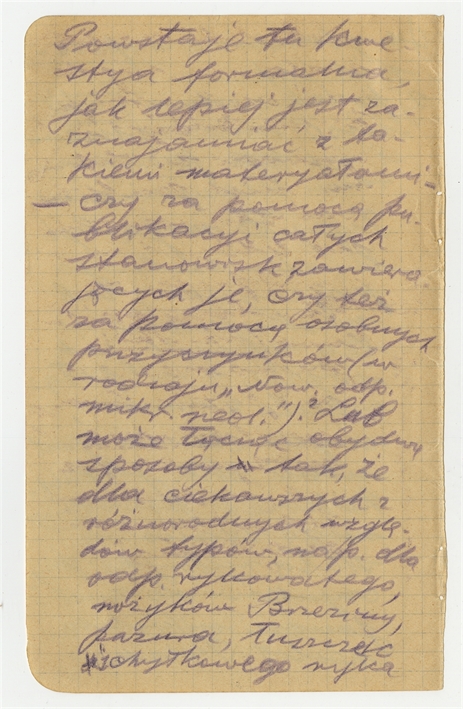 Powstaje tu kwe-
stya formalna,
jak lepiej jest za-
znajamiać z ta-
kiemi materyałami -
— czy za pomocą pu-
blikacyi całych
stanowisk zawiera
jących je, czy też
za pomocą osobnych
przyczynków (w
rodzaju „Now. odp.
mikr. neol.")? Lub
może łącząc obydwa
sposoby tak, że
dla ciekawszych z
różnorodnych wzglę-
dów typów, np. dla
odp. rykowatego,
nożyków Brzeziny,
pazura, łuszczek
schyłkowego ryka